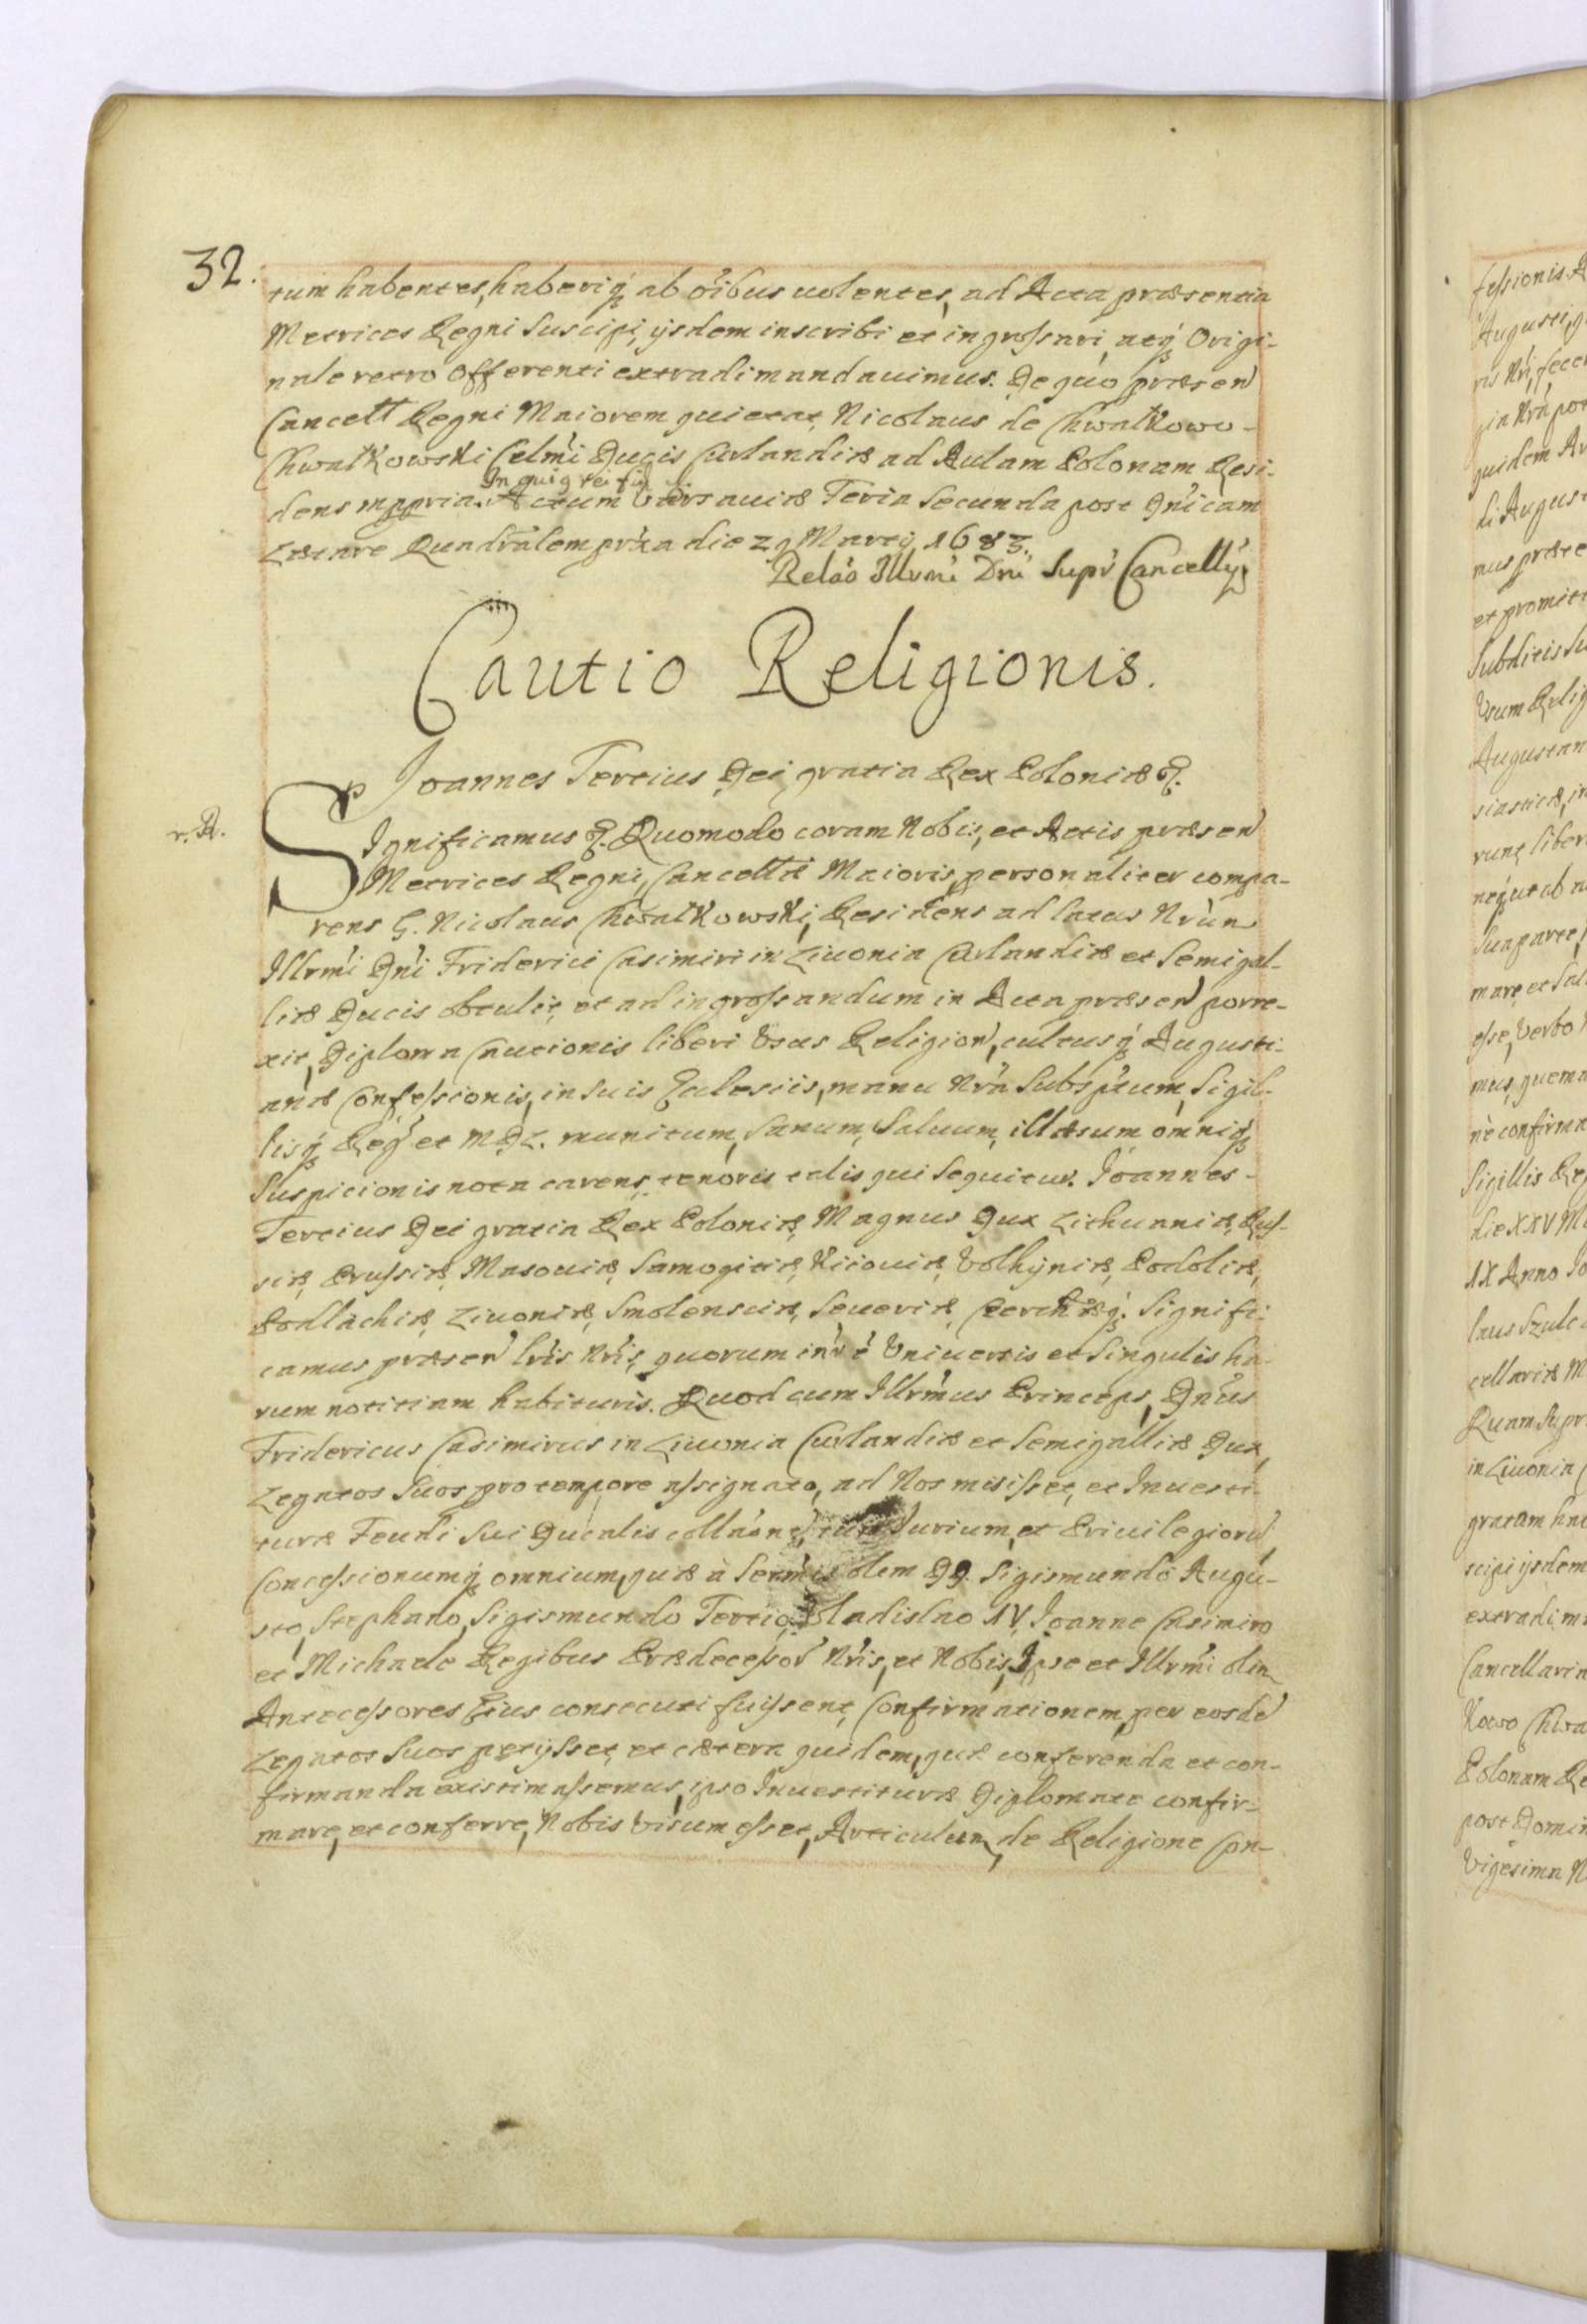 32.
tum habentes, haberiq́ꝫ ab oibus uolentes, ad Acta præsentia
Metrices Regni suscipi, ijsdem inscribi et ingrossari, atq́ꝫ Origi-
nale retro Offerenti extradi mandauimus. De quo præsen
Cancell Regni Maiorem quietat, Nicolaus de Chwalkowo-
Chwalkowski Celmi Ducis Curlandiæ ad Aulam Polonam Resi-
In quig rei fid
dens mppria. Actum Varsauiæ Feria Secunda post Dnicam
Lætare Quadralem pria die 29 Martij 1683.
Relao Illrmi Dni Supr Cancellij
Cautio Religionis.
Joannes Tertius Dei gratia Rex Poloniæ &.
r. R.
Significamus &. Quomodo coram Nobis, et Actis præsen
Metrices Regni, Cancellæ Maioris, personaliter compa-
rens G. Nicolaus Chwalkowski, Residens ad latus Nrum
Illrmi Dni Friderici Casimiri in Liuonia Curlandiæ et Semigal-
liæ Ducis obtulit, et ad ingrossandum in Acta præsen porre-
xit, Diploma Cautionis liberi Usus Religion, cultusq́ꝫ Augusti-
anæ Confessionis, in suis Ecclesiis, manu Nra Subsptum, Sigil-
lisq́ꝫ Reg et MDL. munitum, Sanum, Saluum, illæsum omniq́ꝫ
Suspicionis nota carens, tenoris talis qui sequitur. Joannes-
Tertius Dei gratia Rex Poloniæ, Magnus Dux Lithuaniæ, Rus-
siæ, Prussiæ, Masouiæ, Samogitiæ, Kiiouiæ, Volhÿniæ, Podoliæ,
Podlachiæ, Liuoniæ, Smolensciæ, Seueriæ, Czerchæq́ꝫ. Signifi-
camus præsen lris Nris, quorum intr e Uniuersis et Singulis ha-
rum notitiam habituris. Quod cum Illrmus Princeps, Dnus
Fridericus Casimirus in Liuonia Curlandiæ et Semigalliæ Dux,
Legatos Suos pro tempore assignato, ad Nos misisset, et Inuesti-
turæ Feudi sui Ducalis collaone, tum Jurium, et Priuilegioru,
Concessionumq́ꝫ omnium, quæ à Sermis olem DD. Sigismundo Augu-
sto, Stephano, Sigismundo Tertio, Vladislao IV, Joanne Casimiro
et Michaele Regibus Prædecessor Nris, et Nobis, Ipse et Illrmi olim
Antecessores Eius consecuti fuissent, Confirmationem, per eosde
Legatos Suos petijsset, et cætera quidem, quæ conferenda et con-
firmanda existimassemus, ipso Inuestituræ Diplomate confir-
mare, et conferre, Nobis visum esset, Articulum, de Religione Con-